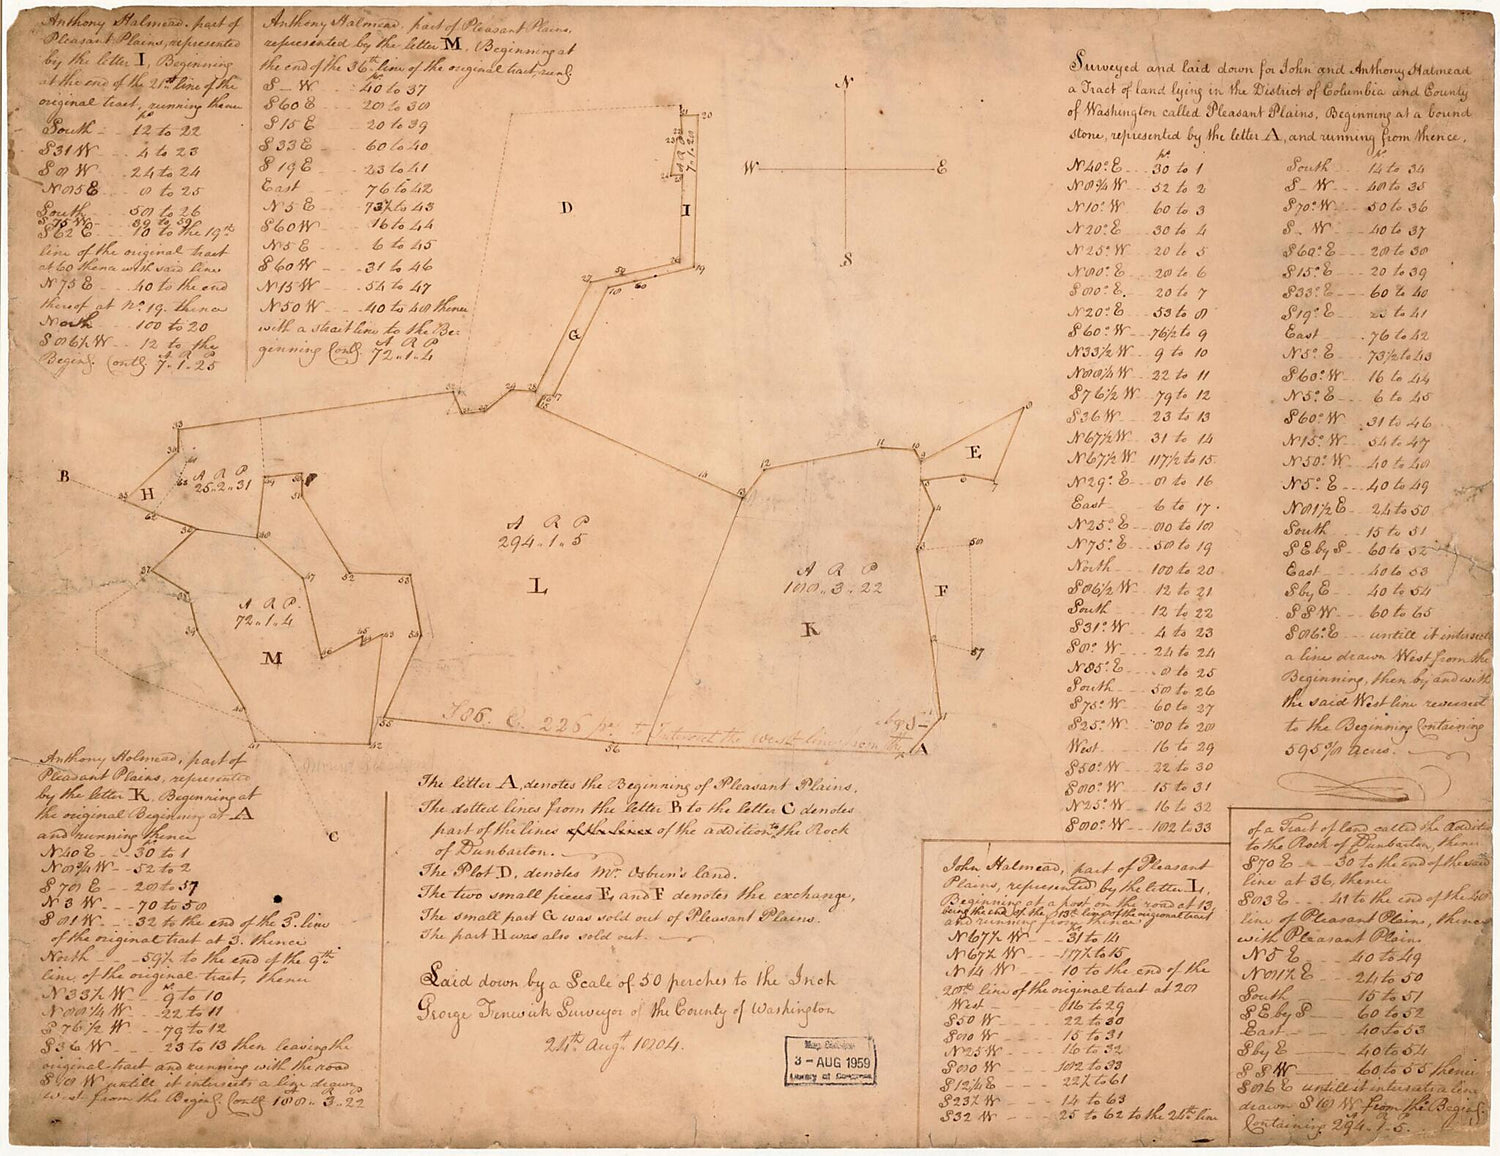 Anthony Halmead, part of
Pleasant Plains, represented
by the letter I, Beginning
at the end of the 21st line of the
original tract, running thence
South - - 12 to 22
S 31 W - - 4 to 23
S 8 W - - 24 to 24
N 85 E - - 8 to 25
South - - 58 to 26
S 75 W - - 39 to 59
S 62 E - - - 10 to the 19th
line of the original tract
at 60 thence with said line
N 75 E - - 40 to the end
thereof at No. 19. thence
North - - 100 to 20
S 86½ W - - 12 to the
A R P
Beging. Contg 7 " 1 " 25
Anthony Halmead, part of Pleasant Plains,
represented by the letter M, Beginning at
the end of the 36th line of the original tract, rung
ps.
S - W - - 40 to 37
S 60 E - - - 28 to 38
S 15 E - - - 20 to 39
S 33 E - - - 60 to 40
S 19 E - - - 23 to 41
East - - - 76 to 42
N 5 E - - - 73½ to 43
S 60 W - - - 16 to 44
N 5 E - - - 6 to 45
S 60 W - - - 31 to 46
N 15 W - - - 54 to 47
N 50 W - - - 40 to 48 thence
with a strait line to the Be-
A R P
ginning Contg 72 " 1 " 4
N
W E
S
Surveyed and laid down for John and Anthony Halmead
a Tract of land lying in the District of Columbia and County
of Washington called Pleasant Plains, Beginning at a bound
stone, represented by the letter A, and running from thence,
ps.
N 40° E - - 30 to 1
N 8¾ W - - 52 to 2
N 10° W 60 to 3
N 20° E - - 30 to 4
N 25° W - - 20 to 5
N 80° E - - 28 to 6
S 80° E. - - 20 to 7
N 20° E - - 53 to 8
S 60° W - - 76½ to 9
N 33½ W - - 9 to 10
N 88¼ W - - 22 to 11
S 76½ W - - 79 to 12
S 36 W - - 23 to 13
N 67½ W - - 31 to 14
N 67½ W - - 117½ to 15
N 29° E - - 8 to 16
East - - - 6 to 17
N 25° E - - 80 to 18
N 75° E - - 58 to 19
North - - - 100 to 20
S 86½ W - - 12 to 21
South - - 12 to 22
S 31° W - - 4 to 23
S 8° W - - 24 to 24
N 85° E - - 8 to 25
South - - 58 to 26
S 75° W - - 60 to 27
S 25° W - - 80 to 28
West - - 16 to 29
S 50° W - - 22 to 30
S 80° W - - 15 to 31
N 25° W - - 16 to 32
S 80° W - - 182 to 33
South - - 14 to 34
S - W - - 48 to 35
S 70° W - - 50 to 36
S - W - - 40 to 37
S 60° E - - 28 to 38
S 15° E - - 20 to 39
S 33° E - - 60 to 40
S 19° E - - 23 to 41
East - - 76 to 42
N 5° E - - 73½ to 43
S 60° W - - 16 to 44
N 5° E - - 6 to 45
S 60° W - - 31 to 46
N 15° W - - 54 to 47
N 50° W - - 40 to 48
N 5° E - - 40 to 49
N 81½ E - - 24 to 50
South - - 15 to 51
S E by S - - 60 to 52
East - - - 40 to 53
S by E - - 40 to 54
S S W - - 60 to 65
S 86° E - - untill it intersects
a line drawn West from the
Beginning, then by and with
the said West line reversed
to the Beginning Containing
595⅞ Acres.
D
A R P
7.1.20
I
G
E
B
H
A R P
25 " 2 " 31
A R P
294 " 1 " 5
L
A R P
188 " 3 " 22
K
F
A R P
72 " 1 " 4
M
S 86. E. 226 ps. to Intersect the west line from the
A
C
Anthony Holmead, part of
Pleasant Plains, represented
by the letter K, Beginning at
the original Beginning at A
and running thence
N 40 E - - 30 to 1
N 8¾ W - - 52 to 2
S 78 E - - 20 to 57
N 3 W - - 70 to 58
S 81 W - - 32 to the end of the 3d. line
of the original tract at 3. thence
North - - 59½ to the end of the 9th
line of the original tract, thence
N 33½ W - 9 to 10
N 88¼ W - - 22 to 11
S 76½ W - - 79 to 12
S 36 W - - 23 to 13 then leaving the
original tract and running with the road
S 18 W untill it intersects a line drawn
West from the Beging Contg 188 " 3 " 22
The letter A, denotes the Beginning of Pleasant Plains,
The dotted lines from the letter B to the letter C denotes
part of the lines of the lines of the addition to the Rock
of Dunbarton.
The Plot D, denotes Mr. Osburn's land.
The two small pieces E, and F denotes the exchange,
The small part G was sold out of Pleasant Plains.
The part H was also sold out.
Laid down by a Scale of 50 perches to the Inch
George Fenwick Surveyor of the County of Washington
24th Augt. 1804.
Map Division
3 - AUG 1959
Library of Congress
John Halmead, part of Pleasant
Plains, represented by the letter L,
Beginning at a post on the road at 13,
being the end of the 13th line of the original tract
and running from thence
N 67½ W - - 31 to 14
N 67½ W - - 117½ to 15
N 14 W - - 10 to the end of the
28th line of the original tract at 28
West - - - 16 to 29
S 50 W - - - 22 to 30
S 80 W - - - 15 to 31
N 25 W - - - 16 to 32
S 80 W - - - 182 to 33
S 12¼ E - - - 22½ to 61
S 23½ W - - - 14 to 63
S 32 W - - - 25 to 62 to the 24th line
of a Tract of land called the Addition
to the Rock of Dunbarton, thence
S 70 E - - 30 to the end of the said
line at 36, thence
S 83 E - - 41 to the end of the 48
line of Pleasant Plains, thence
with Pleasant Plains
N 5 E - - 40 to 49
N 81½ E - - 24 to 50
South - - 15 to 51
S E by S - - 60 to 52
East - - 40 to 53
S by E - - 40 to 54
S S W - - 60 to 55 thence
S 86 E untill it intersects a line
drawn S 18 W from the Beging.
Containing 294 " 1 " 5.